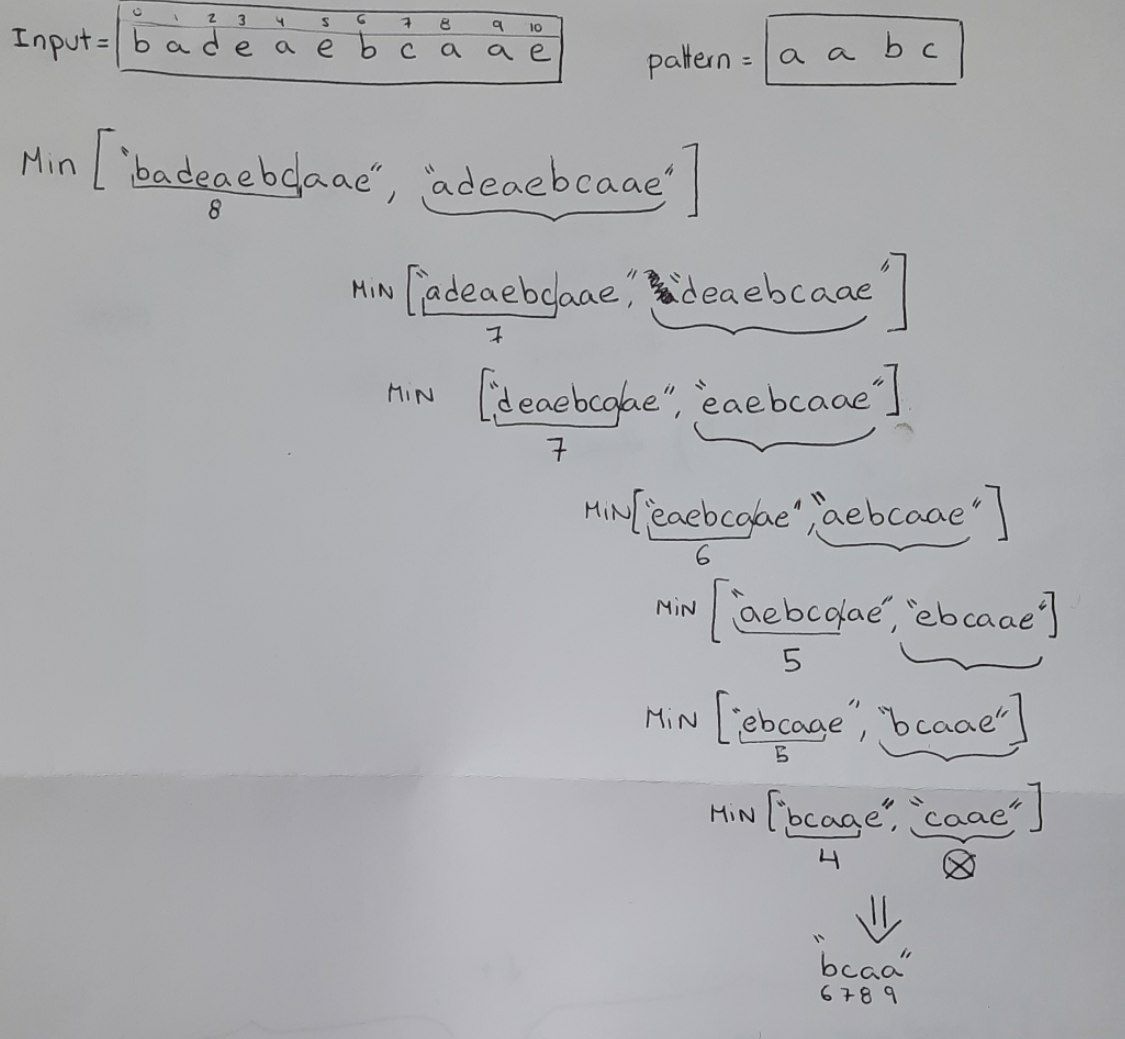 0 1 2 3 4 5 6 7 8 9 10
Input = b a d e a e b c a a e pattern = a a b c
Min ["badeaebcaae", "adeaebcaae"]
8
MiN ["adeaebcaae", "deaebcaae"]
7
MiN ["deaebcaae", "eaebcaae"]
7
MiN["eaebcaae", "aebcaae"]
6
MiN ["aebcaae", "ebcaae"]
5
MiN ["ebcaae", "bcaae"]
5
MiN ["bcaae", "caae"]
4
"bcaa"
6 7 8 9